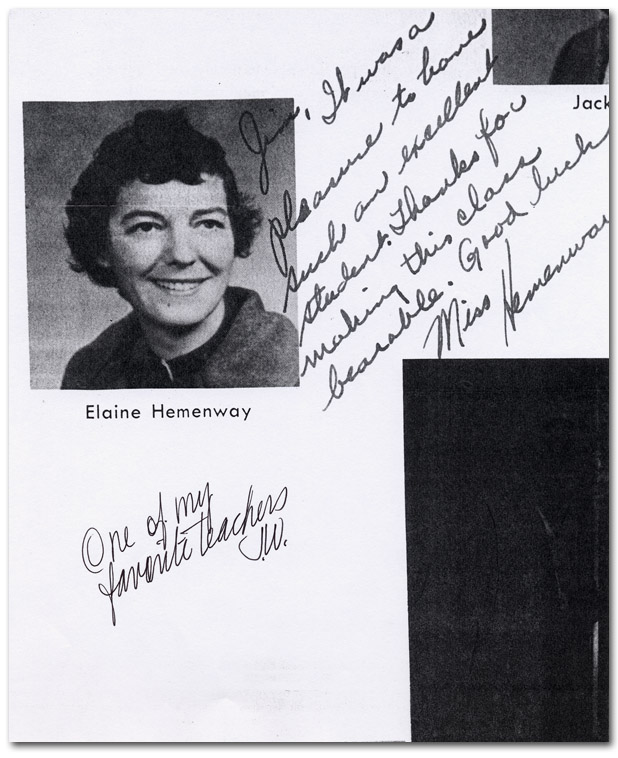 Jim, It was a
pleasure to have
such an excellent
student. Thanks for
making this class
bearable. Good luck
Miss Hemenway
Jack
Elaine Hemenway
One of my
favorite teachers
J.W.